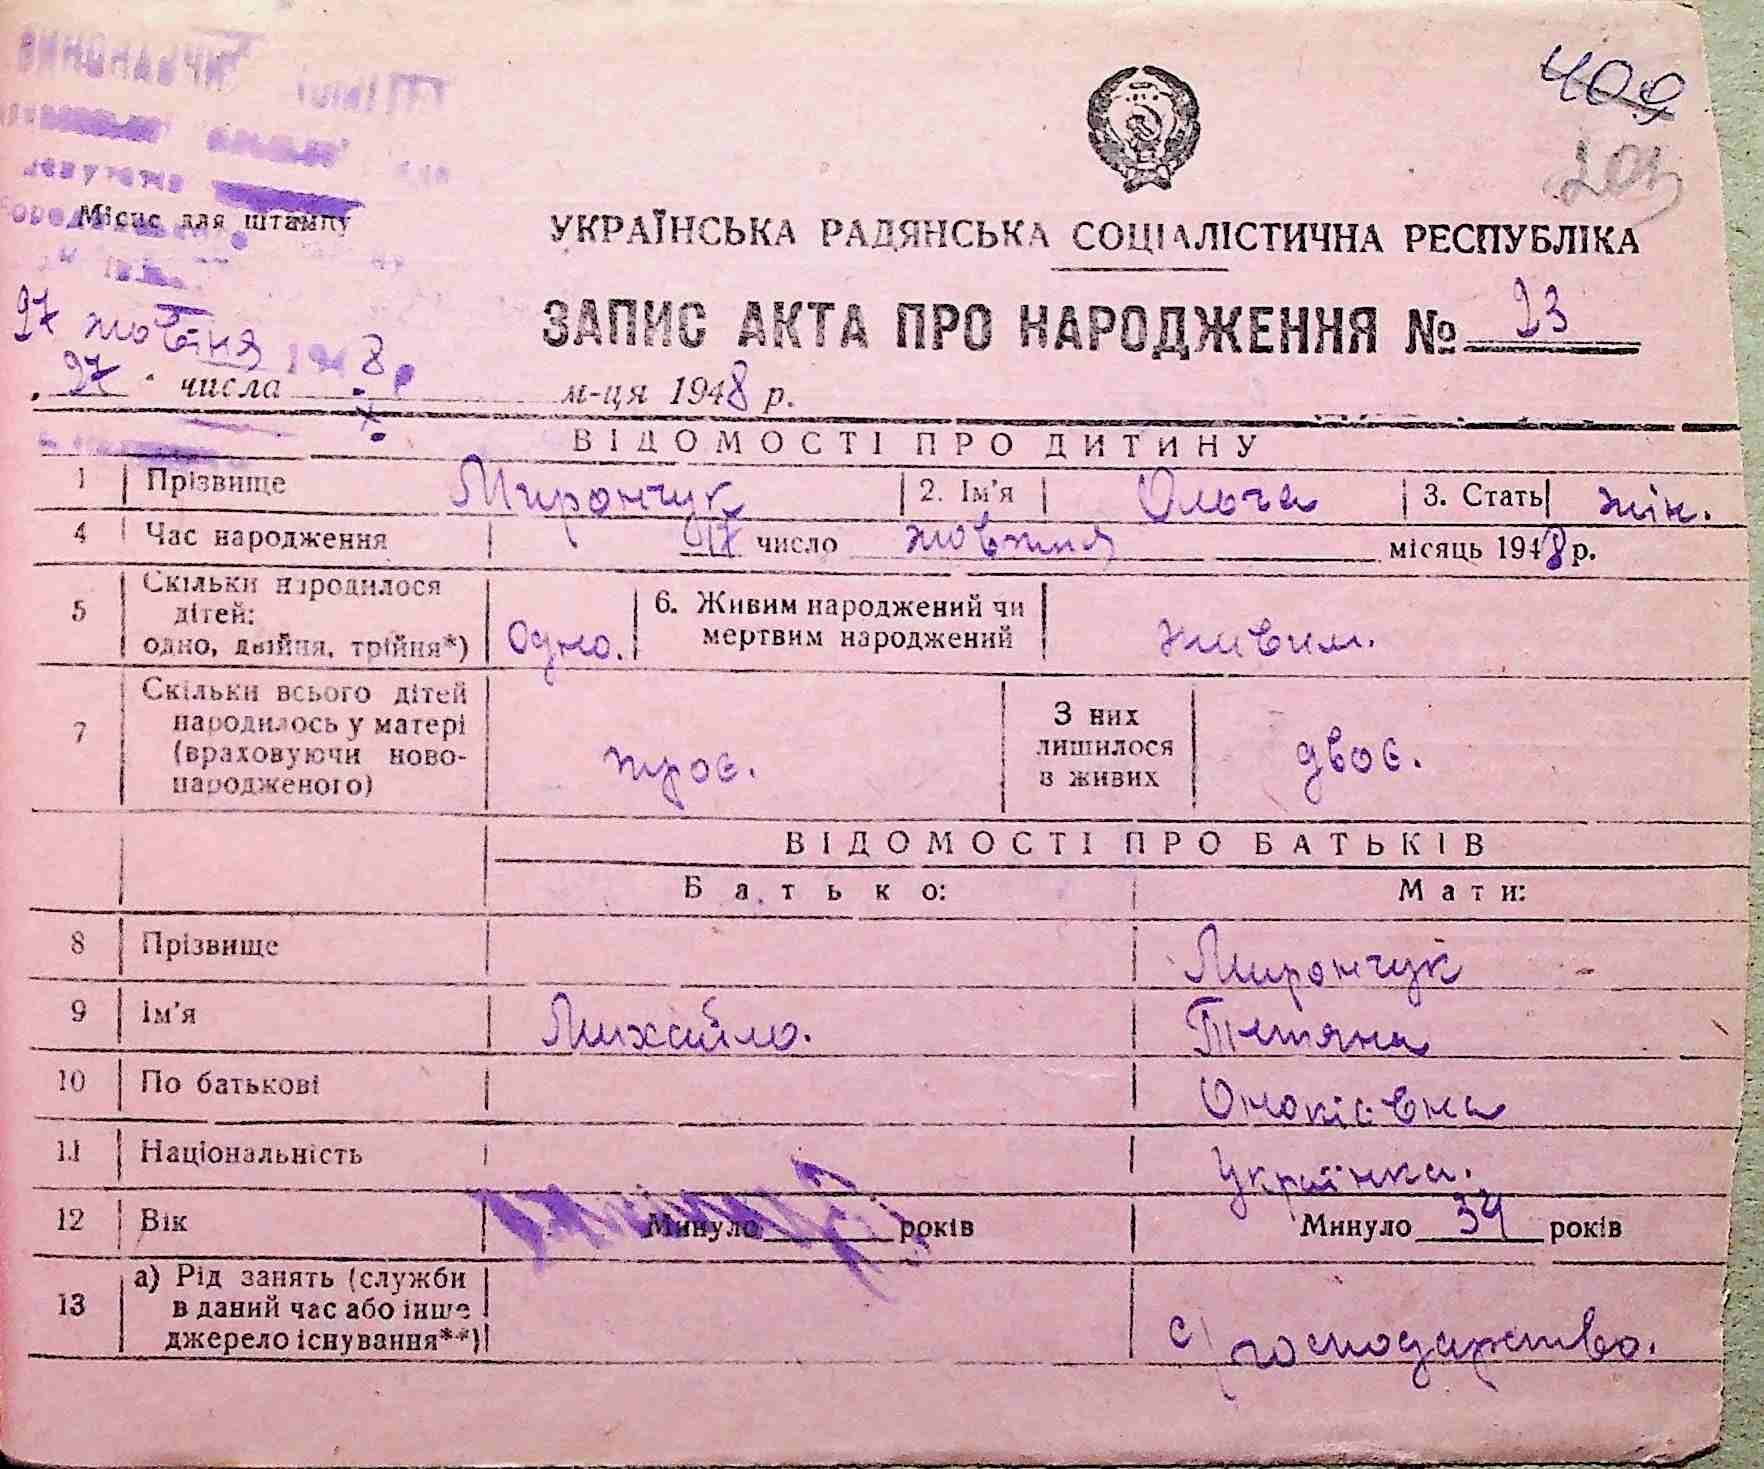 409
201
Місце для штампу
УКРАЇНСЬКА РАДЯНСЬКА СОЦІАЛІСТИЧНА РЕСПУБЛІКА
ЗАПИС АКТА ПРО НАРОДЖЕННЯ № 23
27 жовтня 1948 р
"27" числа м-ця 1948 р.
ВІДОМОСТІ ПРО ДИТИНУ
1 Прізвище Мирончук 2. Ім'я Ольга 3. Стать жін.
4 Час народження 17 число жовтня місяць 1948 р.
Скільки народилося
5 дітей: 6. Живим народжений чи
одно, двійня, трійня*) Одно. мертвим народжений живим.
Скільки всього дітей
7 народилось у матері троє. З них двоє.
(враховуючи ново- лишилося
народженого) в живих
ВІДОМОСТІ ПРО БАТЬКІВ
Батько: Мати:
8 Прізвище Мирончук
9 Ім'я Михайло. Тетяна
10 По батькові
11 Національність Українка.
12 Вік Минуло років Минуло 34 років
а) Рід занять (служби
13 в даний час або інше
джерело існування**) с/господарство.